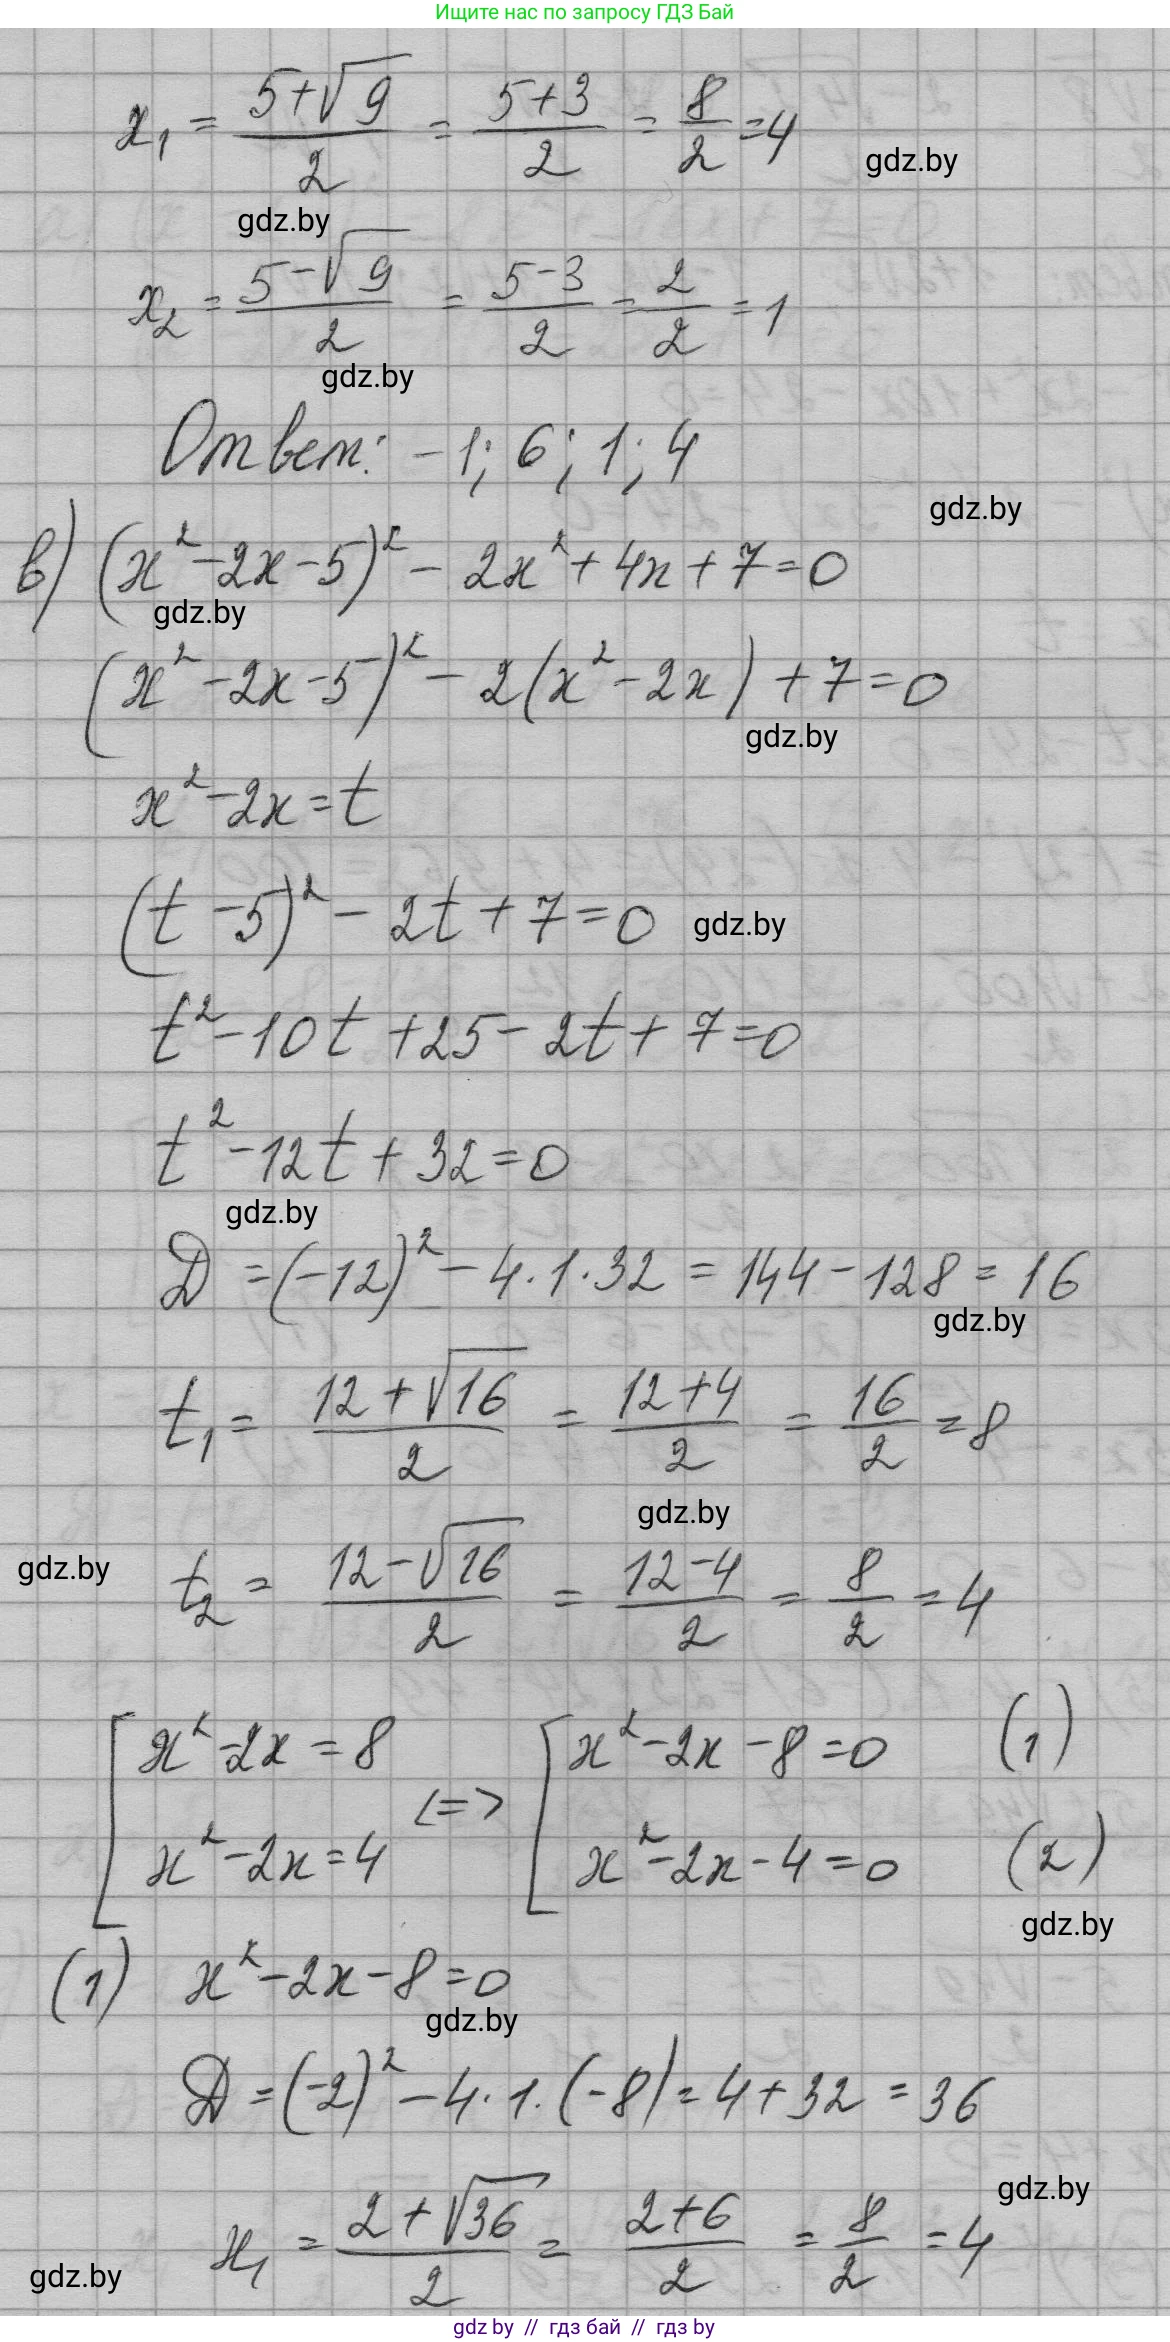 Ищите нас по запросу ГДЗ Бай
x₁ = (5+√9)/2 = (5+3)/2 = 8/2 = 4
gdz.by
gdz.by
x₂ = (5-√9)/2 = (5-3)/2 = 2/2 = 1
gdz.by
Ответ: -1; 6; 1; 4
gdz.by
в) (x²-2x-5)² - 2x² + 4x + 7 = 0
gdz.by
(x²-2x-5)² - 2(x²-2x) + 7 = 0
gdz.by
x²-2x = t
(t-5)² - 2t + 7 = 0 gdz.by
t² - 10t + 25 - 2t + 7 = 0
t² - 12t + 32 = 0
gdz.by
D = (-12)² - 4·1·32 = 144 - 128 = 16
gdz.by
t₁ = (12+√16)/2 = (12+4)/2 = 16/2 = 8
gdz.by
gdz.by
t₂ = (12-√16)/2 = (12-4)/2 = 8/2 = 4
[ x²-2x = 8 <=> [ x²-2x-8=0 (1)
x²-2x = 4 x²-2x-4=0 (2)
gdz.by
(1) x²-2x-8=0
gdz.by
D = (-2)² - 4·1·(-8) = 4+32 = 36
gdz.by
x₁ = (2+√36)/2 = (2+6)/2 = 8/2 = 4
gdz.by
gdz by // гдз бай // gdz by